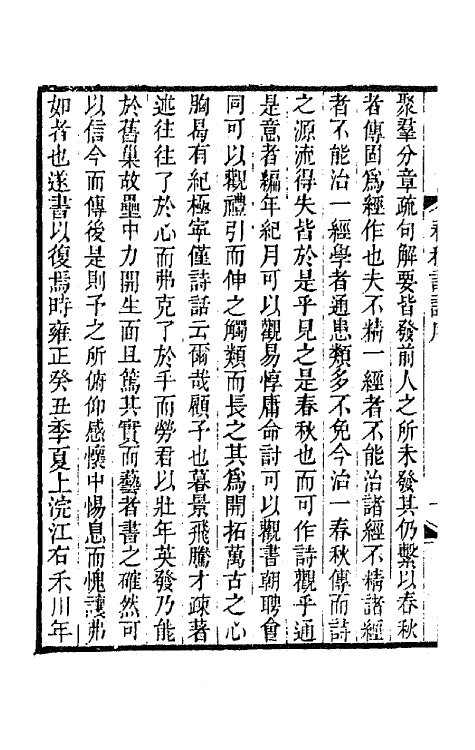 聚羣分章疏句解要皆發前人之所未發其仍繫以春秋
者傳固爲經作也夫不精一經者不能治諸經不精諸經
者不能治一經學者通患類多不免今治一春秋傳而詩
之源流得失皆於是乎見之是春秋也而可作詩觀乎通
是意者編年紀月可以觀易惇庸命討可以觀書朝聘會
同可以觀禮引而伸之觸類而長之其爲開拓萬古之心
胸曷有紀極寜僅詩話云爾哉顧予也暮景飛騰才疎著
述往往了於心而弗克了於手而勞君以壯年英發乃能
於舊巢故壘中力開生面且篤其實而藝者書之確然可
以信今而傳後是則予之所俯仰感懷中惕息而愧謢弗
如者也遂書以復焉時雍正癸丑季夏上浣江右禾川年